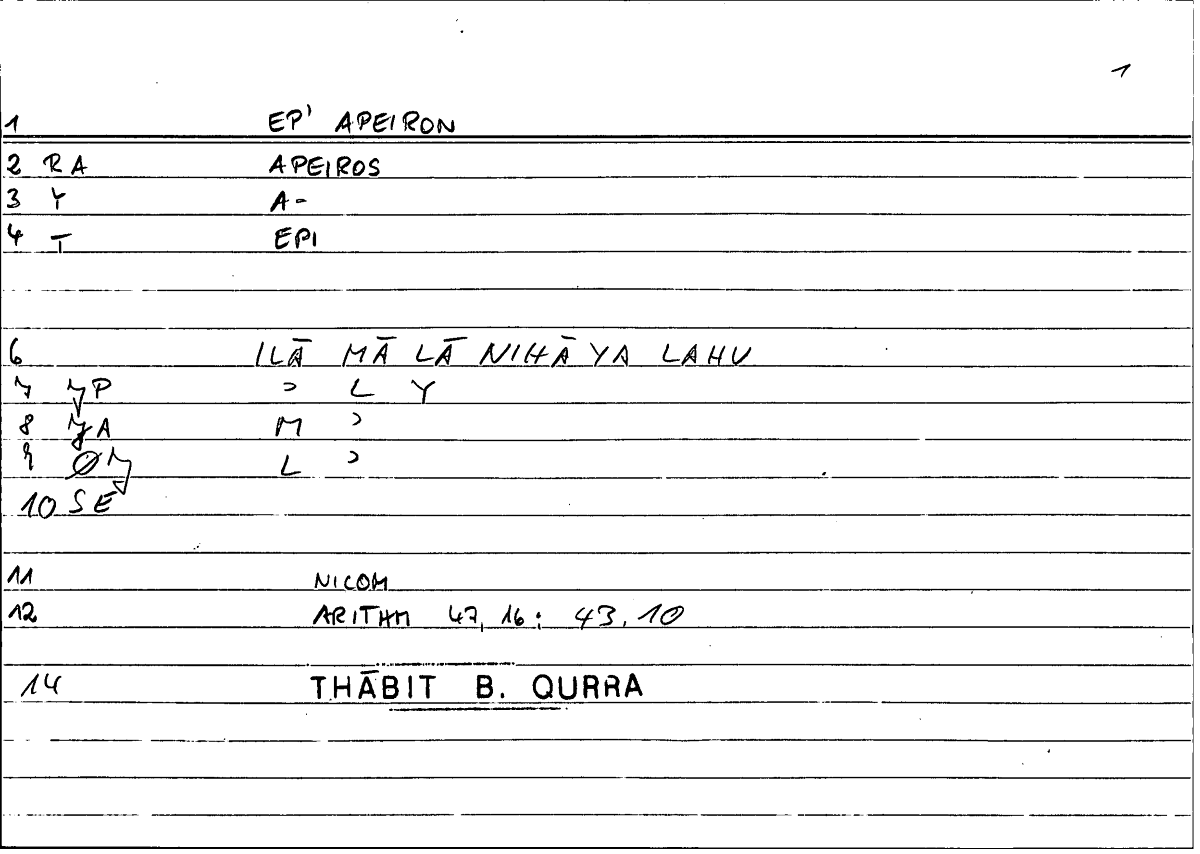 1
1 EP' APEIRON
2 RA APEIROS
3 Y A-
4 T EPI
6 ILĀ MĀ LĀ NIHĀYA LAHU
7 7P ʾ L Y
8 A M ʾ
9 Ø7 L ʾ
10 SE
11 NICOM
12 ARITHM 47, 16; 43, 10
14 THĀBIT B. QURRA